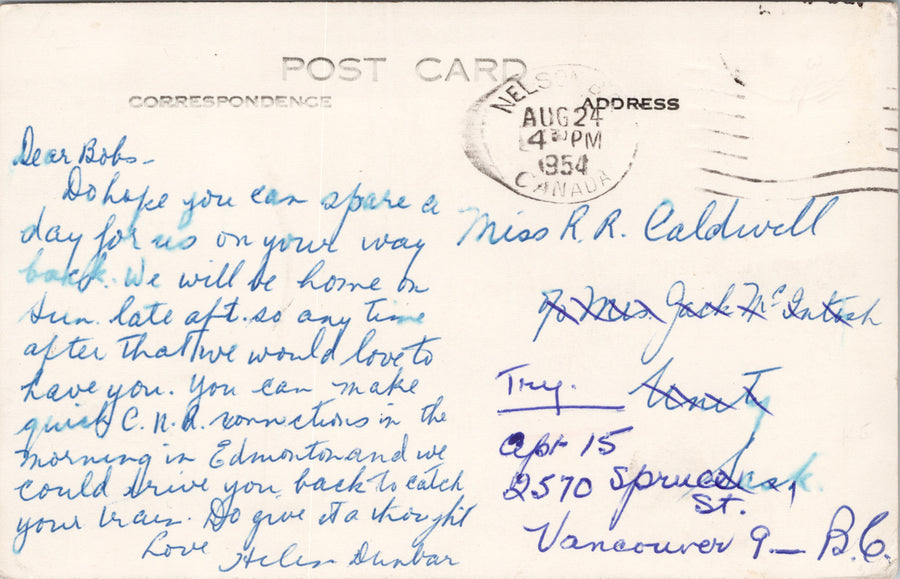 POST CARD
CORRESPONDENCE
ADDRESS
NELSON B.C.
AUG 24
4 30 PM
1954
CANADA
Dear Bobs -
Do hope you can spare a
day for us on your way
back. We will be home on
Sun. late aft. so any time
after that we would love to
have you. You can make
quick C.N.R. connections in the
morning in Edmonton and we
could drive you back to catch
your train. Do give it a thought
Love
Helen Dunbar
Miss R. R. Caldwell
c/o Mrs. Jack McIntosh
Unity
Sask.
Try.
Apt 15
2570 Spruce
St.
Vancouver 9 - B.C.